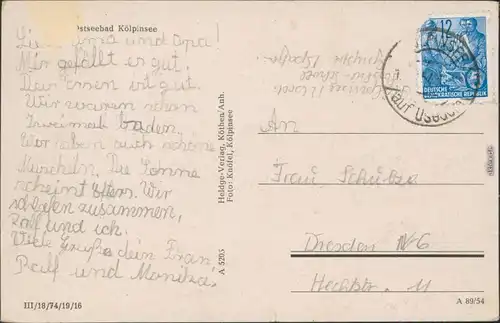 Ostseebad Kölpinsee
Liebe Oma und Opa!
Mir gefällt er gut.
Das Essen ist gut.
Wir waren schon
zweimal baden.
Wir haben auch schöne
Muscheln. Die Sonne
scheint. Wir
schlafen zusammen,
Ralf und ich.
Viele Grüße dein
Ralf und Monika.
III/18/74/19/16
A 5205
Heldge-Verlag, Köthen/Anh.
Foto: Knüfel, Kölpinsee
12
DEUTSCHE
DEMOKRATISCHE REPUBLIK
(auf Usedom)
An
Frau Schulze
Dresden N 6
Hechtstr. 11
A 89/54